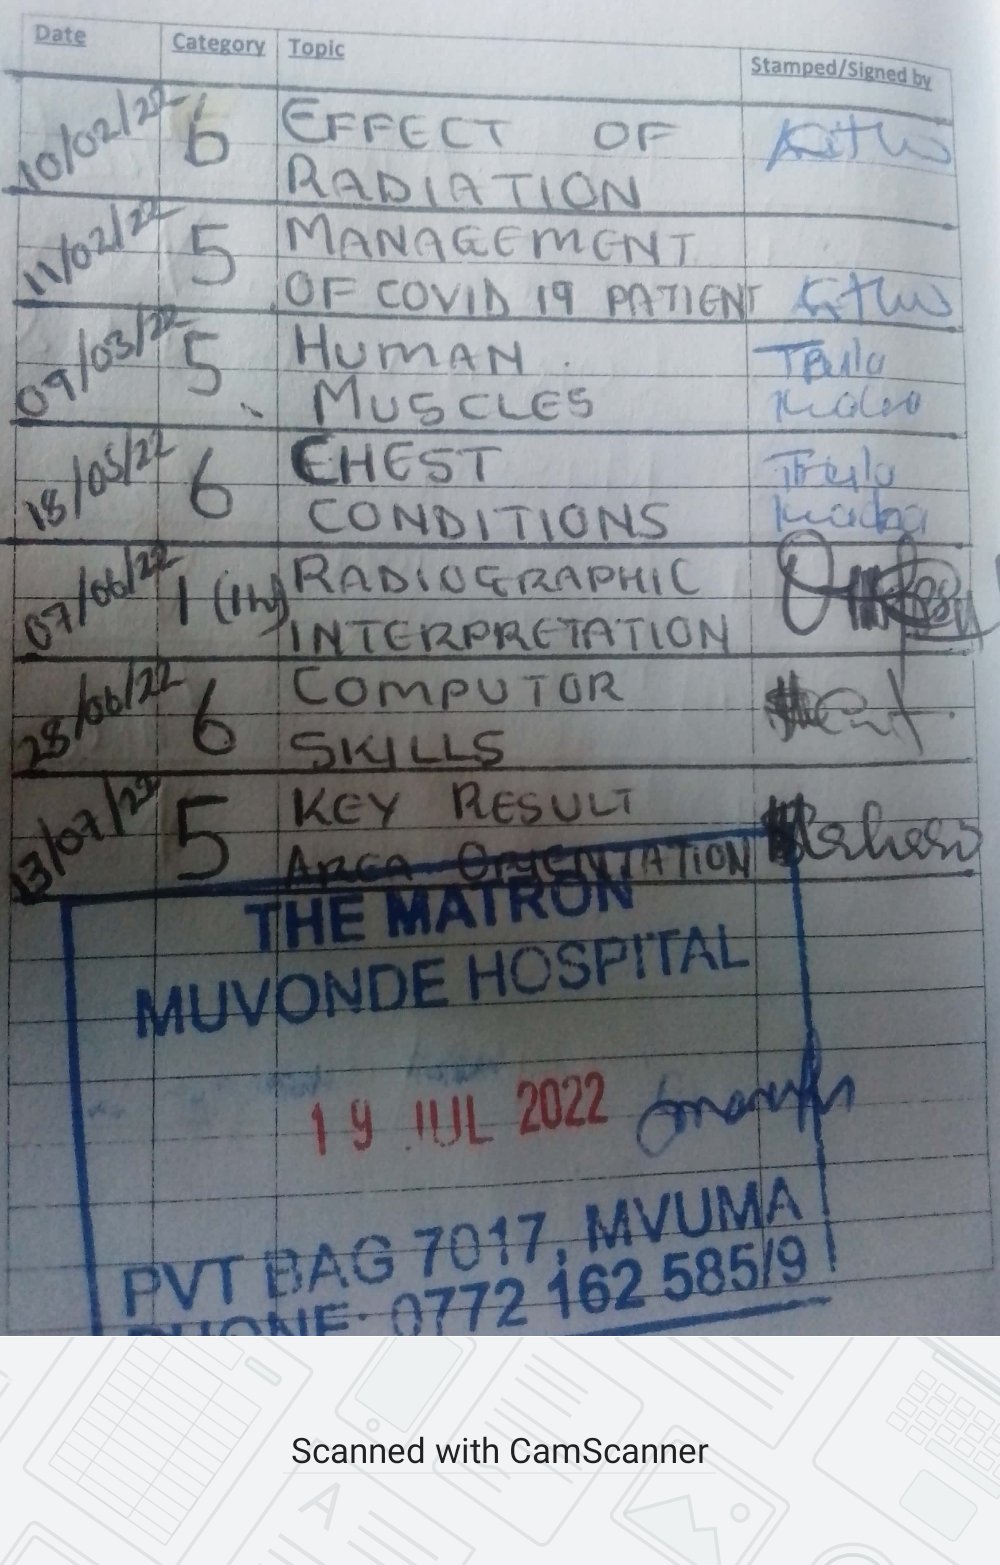 Date Category Topic Stamped/Signed by
10/02/22 6 EFFECT OF
RADIATION
11/02/22 5 MANAGEMENT
OF COVID 19 PATIENT
09/03/22 5 HUMAN
MUSCLES
18/05/22 6 CHEST
CONDITIONS
07/06/22 1 (1hr) RADIOGRAPHIC
INTERPRETATION
28/06/22 6 COMPUTOR
SKILLS
13/07/22 5 KEY RESULT
AREA ORIENTATION
THE MATRON
MUVONDE HOSPITAL
19 JUL 2022
PVT BAG 7017, MVUMA
PHONE: 0772 162 585/9
Scanned with CamScanner